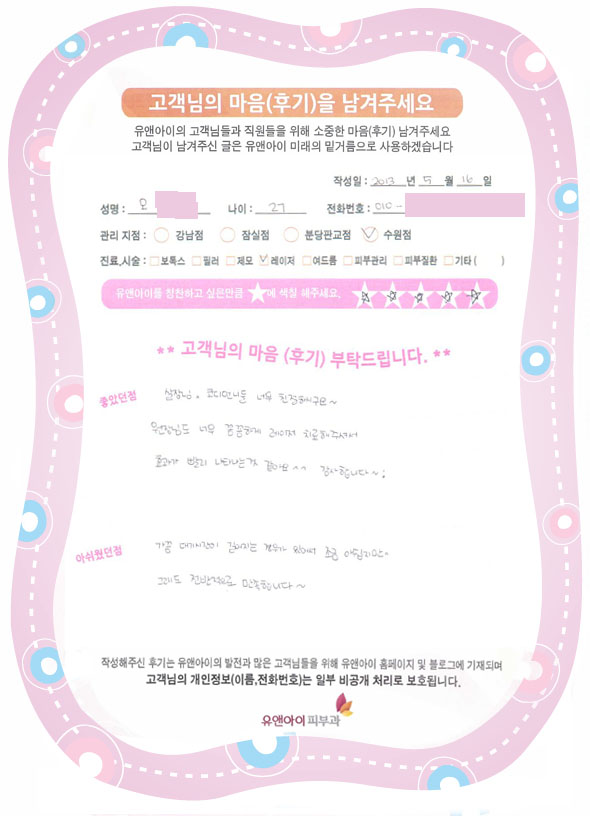 고객님의 마음(후기)을 남겨주세요
유앤아이의 고객님들과 직원들을 위해 소중한 마음(후기) 남겨주세요
고객님이 남겨주신 글은 유앤아이 미래의 밑거름으로 사용하겠습니다
작성일 : 2013 년 5 월 16 일
성명 : 오 나이 : 27 전화번호 : 010 -
관리 지점 : 강남점 잠실점 분당판교점 수원점
진료,시술 : 보톡스 필러 제모 레이저 여드름 피부관리 피부질환 기타 ( )
유앤아이를 칭찬하고 싶은만큼 ★에 색칠 해주세요.
** 고객님의 마음 (후기) 부탁드립니다. **
좋았던점 실장님, 코디언니들 너무 친절하구요~
원장님도 너무 꼼꼼하게 레이저 치료해주셔서
효과가 빨리 나타나는것 같아요 ^^ 감사합니다~;
아쉬웠던점 가끔 대기시간이 길어지는 경우가 있어서 조금 아쉽지만~
그래도 전반적으로 만족합니다~
작성해주신 후기는 유앤아이의 발전과 많은 고객님들을 위해 유앤아이 홈페이지 및 블로그에 기재되며
고객님의 개인정보(이름,전화번호)는 일부 비공개 처리로 보호됩니다.
유앤아이피부과